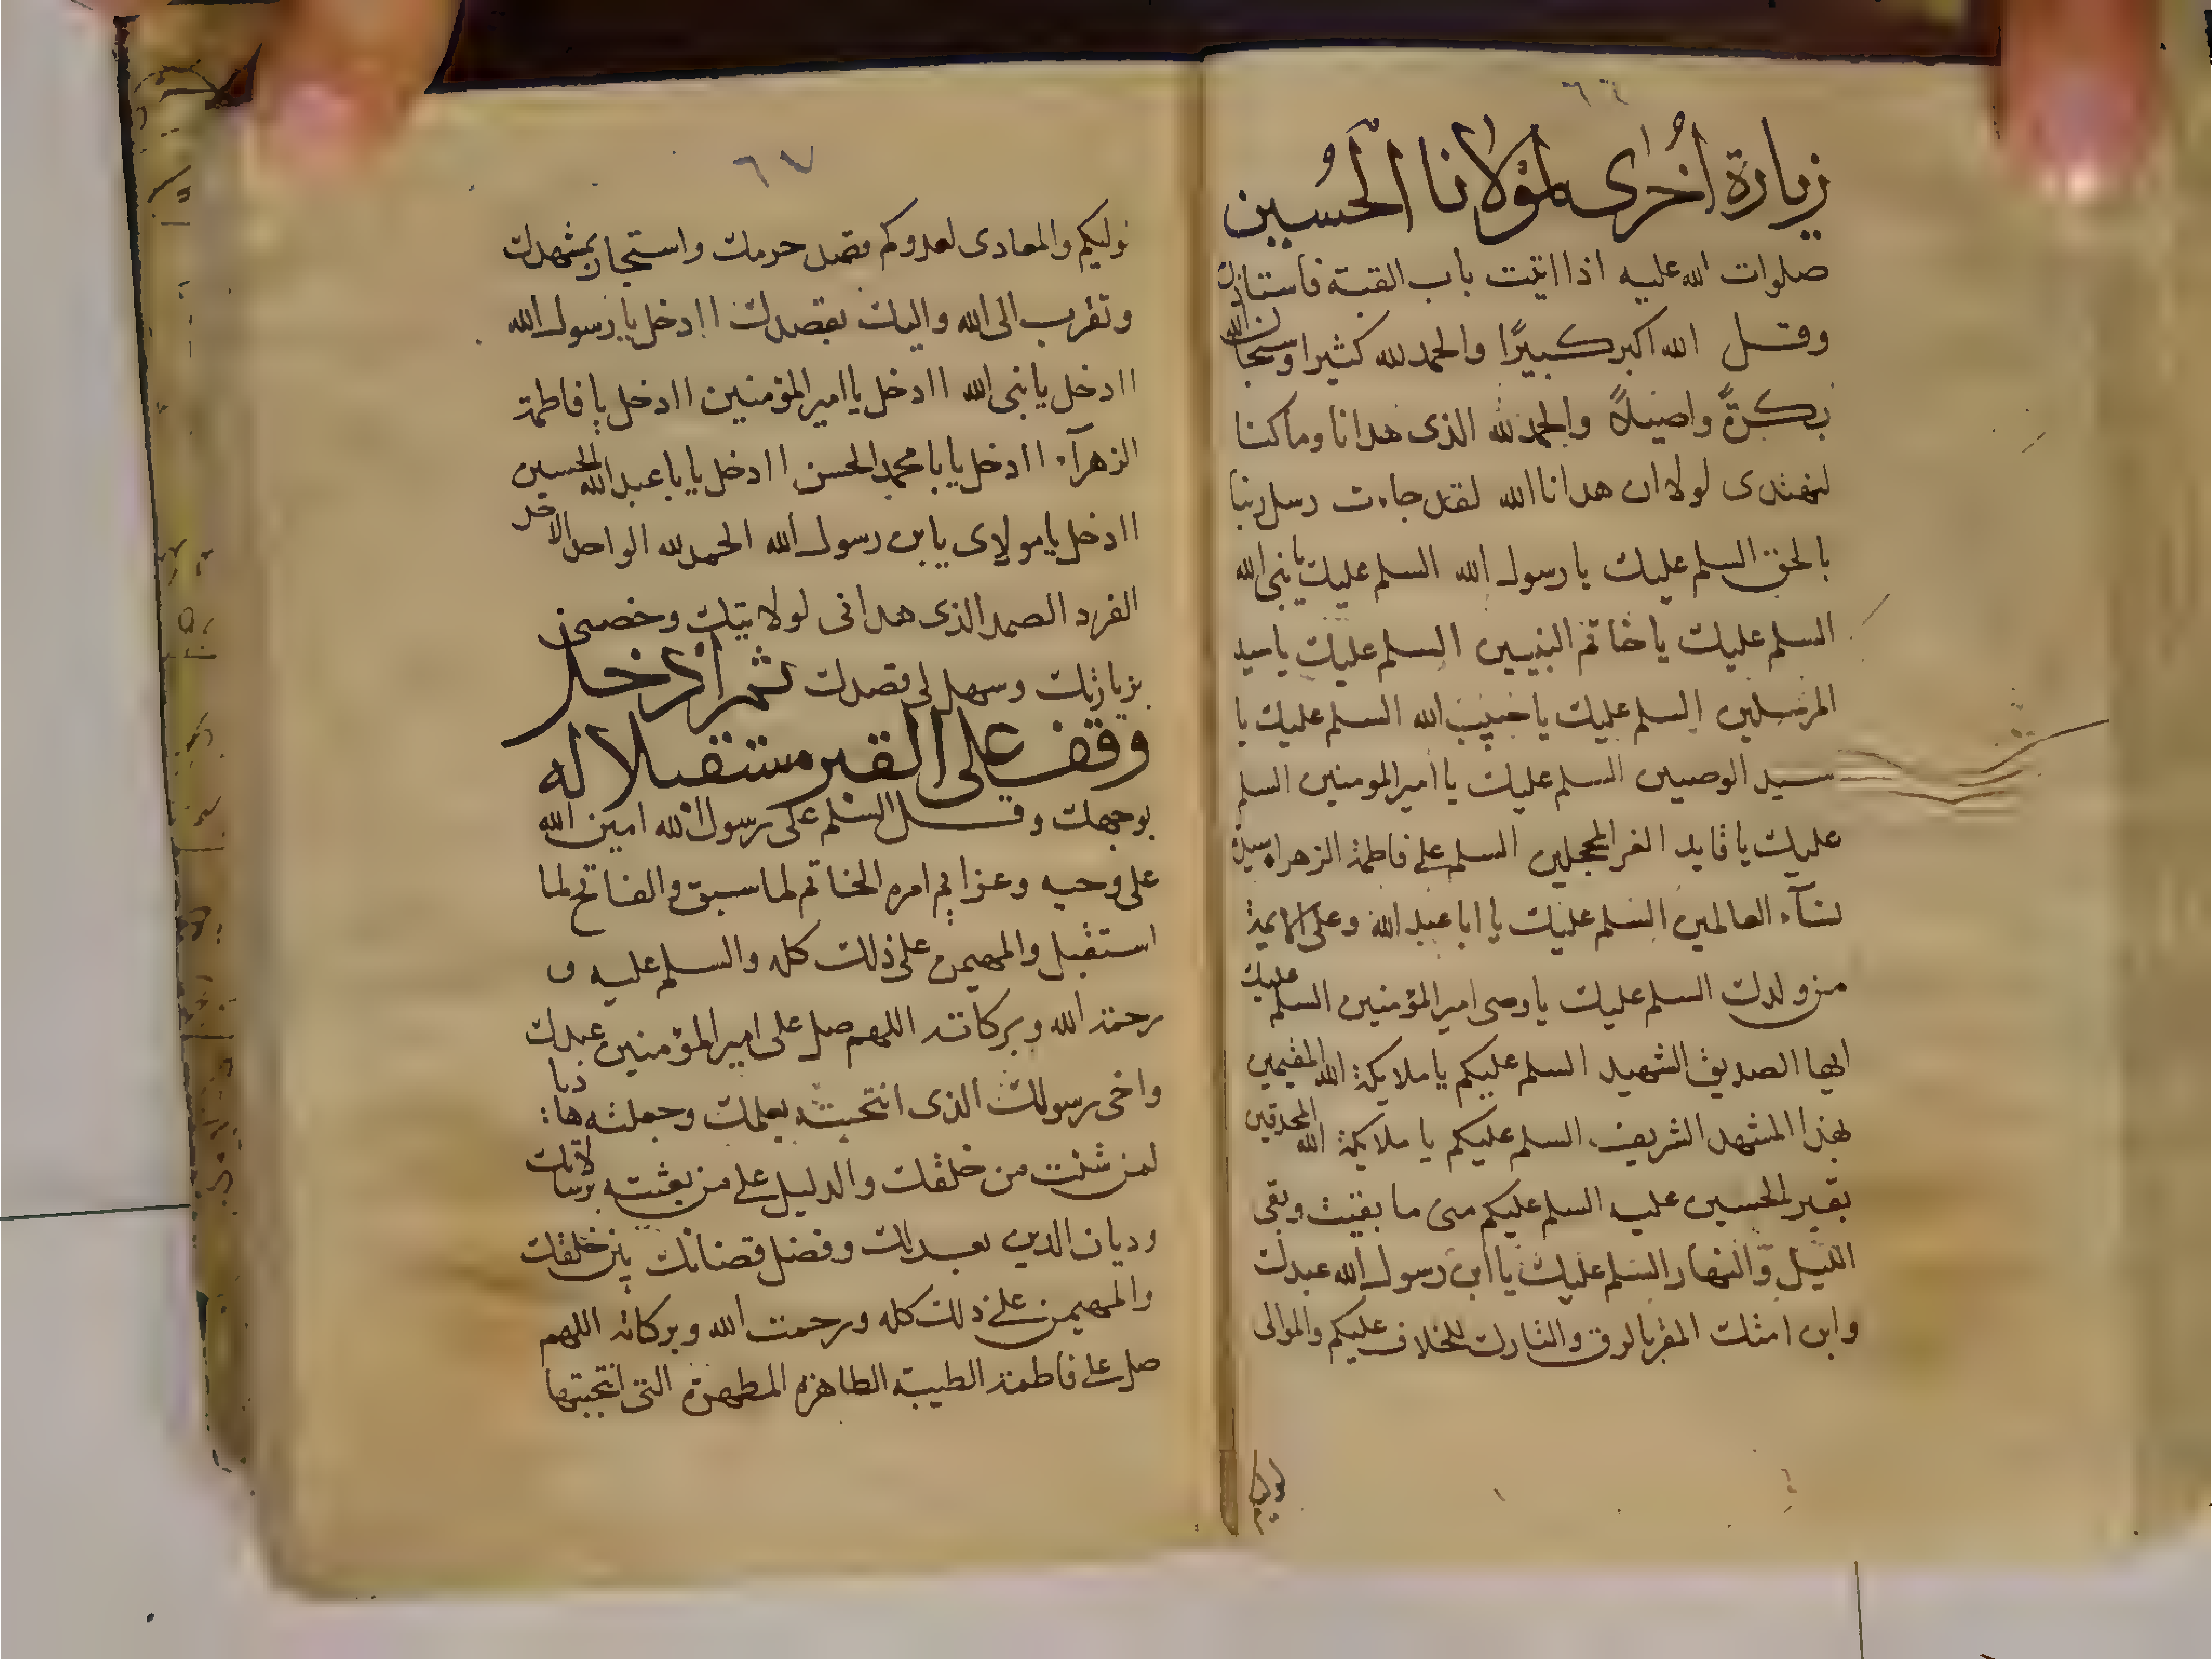 ٦٦
زيارة أخرى لمولانا الحسين
صلوات الله عليه اذا اتيت باب القبة فاستاذن
وقل الله اكبر كبيرًا والحمد لله كثيرا وسبحان الله
بكرةً واصيلاً والحمد لله الذى هدانا وما كنا
لنهتدى لولا ان هدانا الله لقد جاءت رسل ربنا
بالحق السلم عليك يا رسول الله السلم عليك يا نبى الله
السلم عليك يا خاتم النبيين السلم عليك يا سيد
المرسلين السلم عليك يا حبيب الله السلم عليك يا
سيد الوصيين السلم عليك يا امير المومنين السلم
عليك يا قايد الغر المحجلين السلم على فاطمة الزهراء سيدة
نسآء العالمين السلم عليك يا ابا عبد الله وعلى الايمة
من ولدك السلم عليك يا وصى امير المؤمنين السلم عليك
ايها الصديق الشهيد السلم عليكم يا ملايكة الله المقيمين
بهذا المشهد الشريف السلم عليكم يا ملايكة الله المحدقين
بقبر الحسين عليه السلم عليكم منى ما بقيت وبقى
الليل والنهار السلم عليك يا ابن رسول الله عبدك
وابن امتك المقر بالرق والتارك للخلاف عليكم والموالى
لوليكم
٦٧
لوليكم والمعادى لعدوكم قصد حرمك واستجار بمشهدك
وتقرب الى الله واليك بقصدك اادخل يا رسول الله
اادخل يا نبى الله اادخل يا امير المؤمنين اادخل يا فاطمة
الزهرآء اادخل يا با محمد الحسن اادخل يا با عبد الله الحسين
اادخل يا مولاى يا بن رسول الله الحمد لله الواحد الاحد
الفرد الصمد الذى هدانى لولايتك وخصنى
بزيارتك وسهل لى قصدك ثم ادخل
وقف على القبر مستقبلا له
بوجهك وقل السلم على رسول الله امين الله
على وحيه وعزايم امره الخاتم لما سبق والفاتح لما
استقبل والمهيمن على ذلك كله والسلم عليه و
رحمة الله وبركاته اللهم صل على امير المؤمنين عبدك
واخى رسولك الذى انتجبته بعلمك وجعلته هاديا
لمن شئت من خلقك والدليل على من بعثته برسالاتك
وديان الدين بعدلك وفصل قضائك بين خلقك
والمهيمن على ذلك كله ورحمت الله وبركاته اللهم
صل على فاطمة الطيبة الطاهرة المطهرة التى انتجبتها